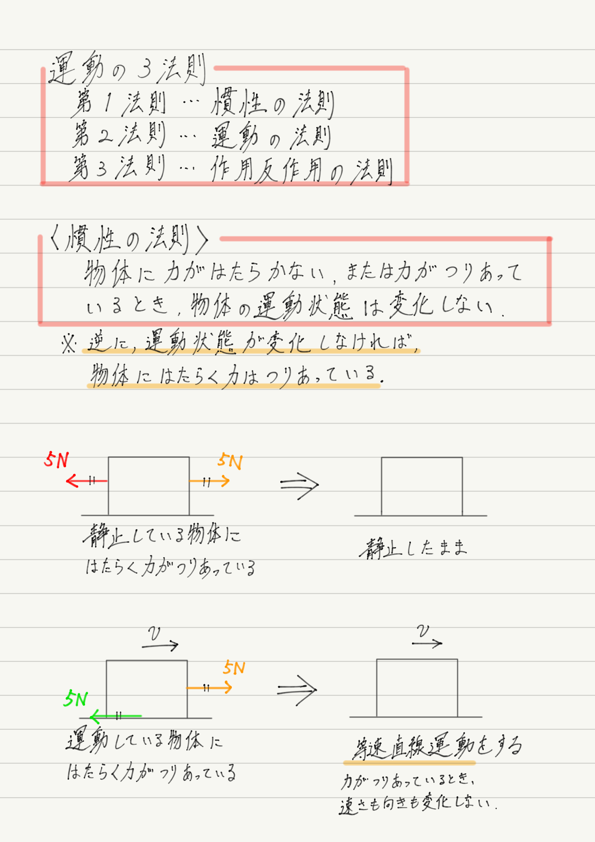 運動の3法則
第1法則…慣性の法則
第2法則…運動の法則
第3法則…作用反作用の法則
〈慣性の法則〉
物体に力がはたらかない,または力がつりあって
いるとき,物体の運動状態は変化しない.
※逆に,運動状態が変化しなければ,
物体にはたらく力はつりあっている.
5N 5N
静止している物体に
はたらく力がつりあっている
静止したまま
v v
5N
5N
運動している物体に
はたらく力がつりあっている
等速直線運動をする
力がつりあっているとき,
速さも向きも変化しない.